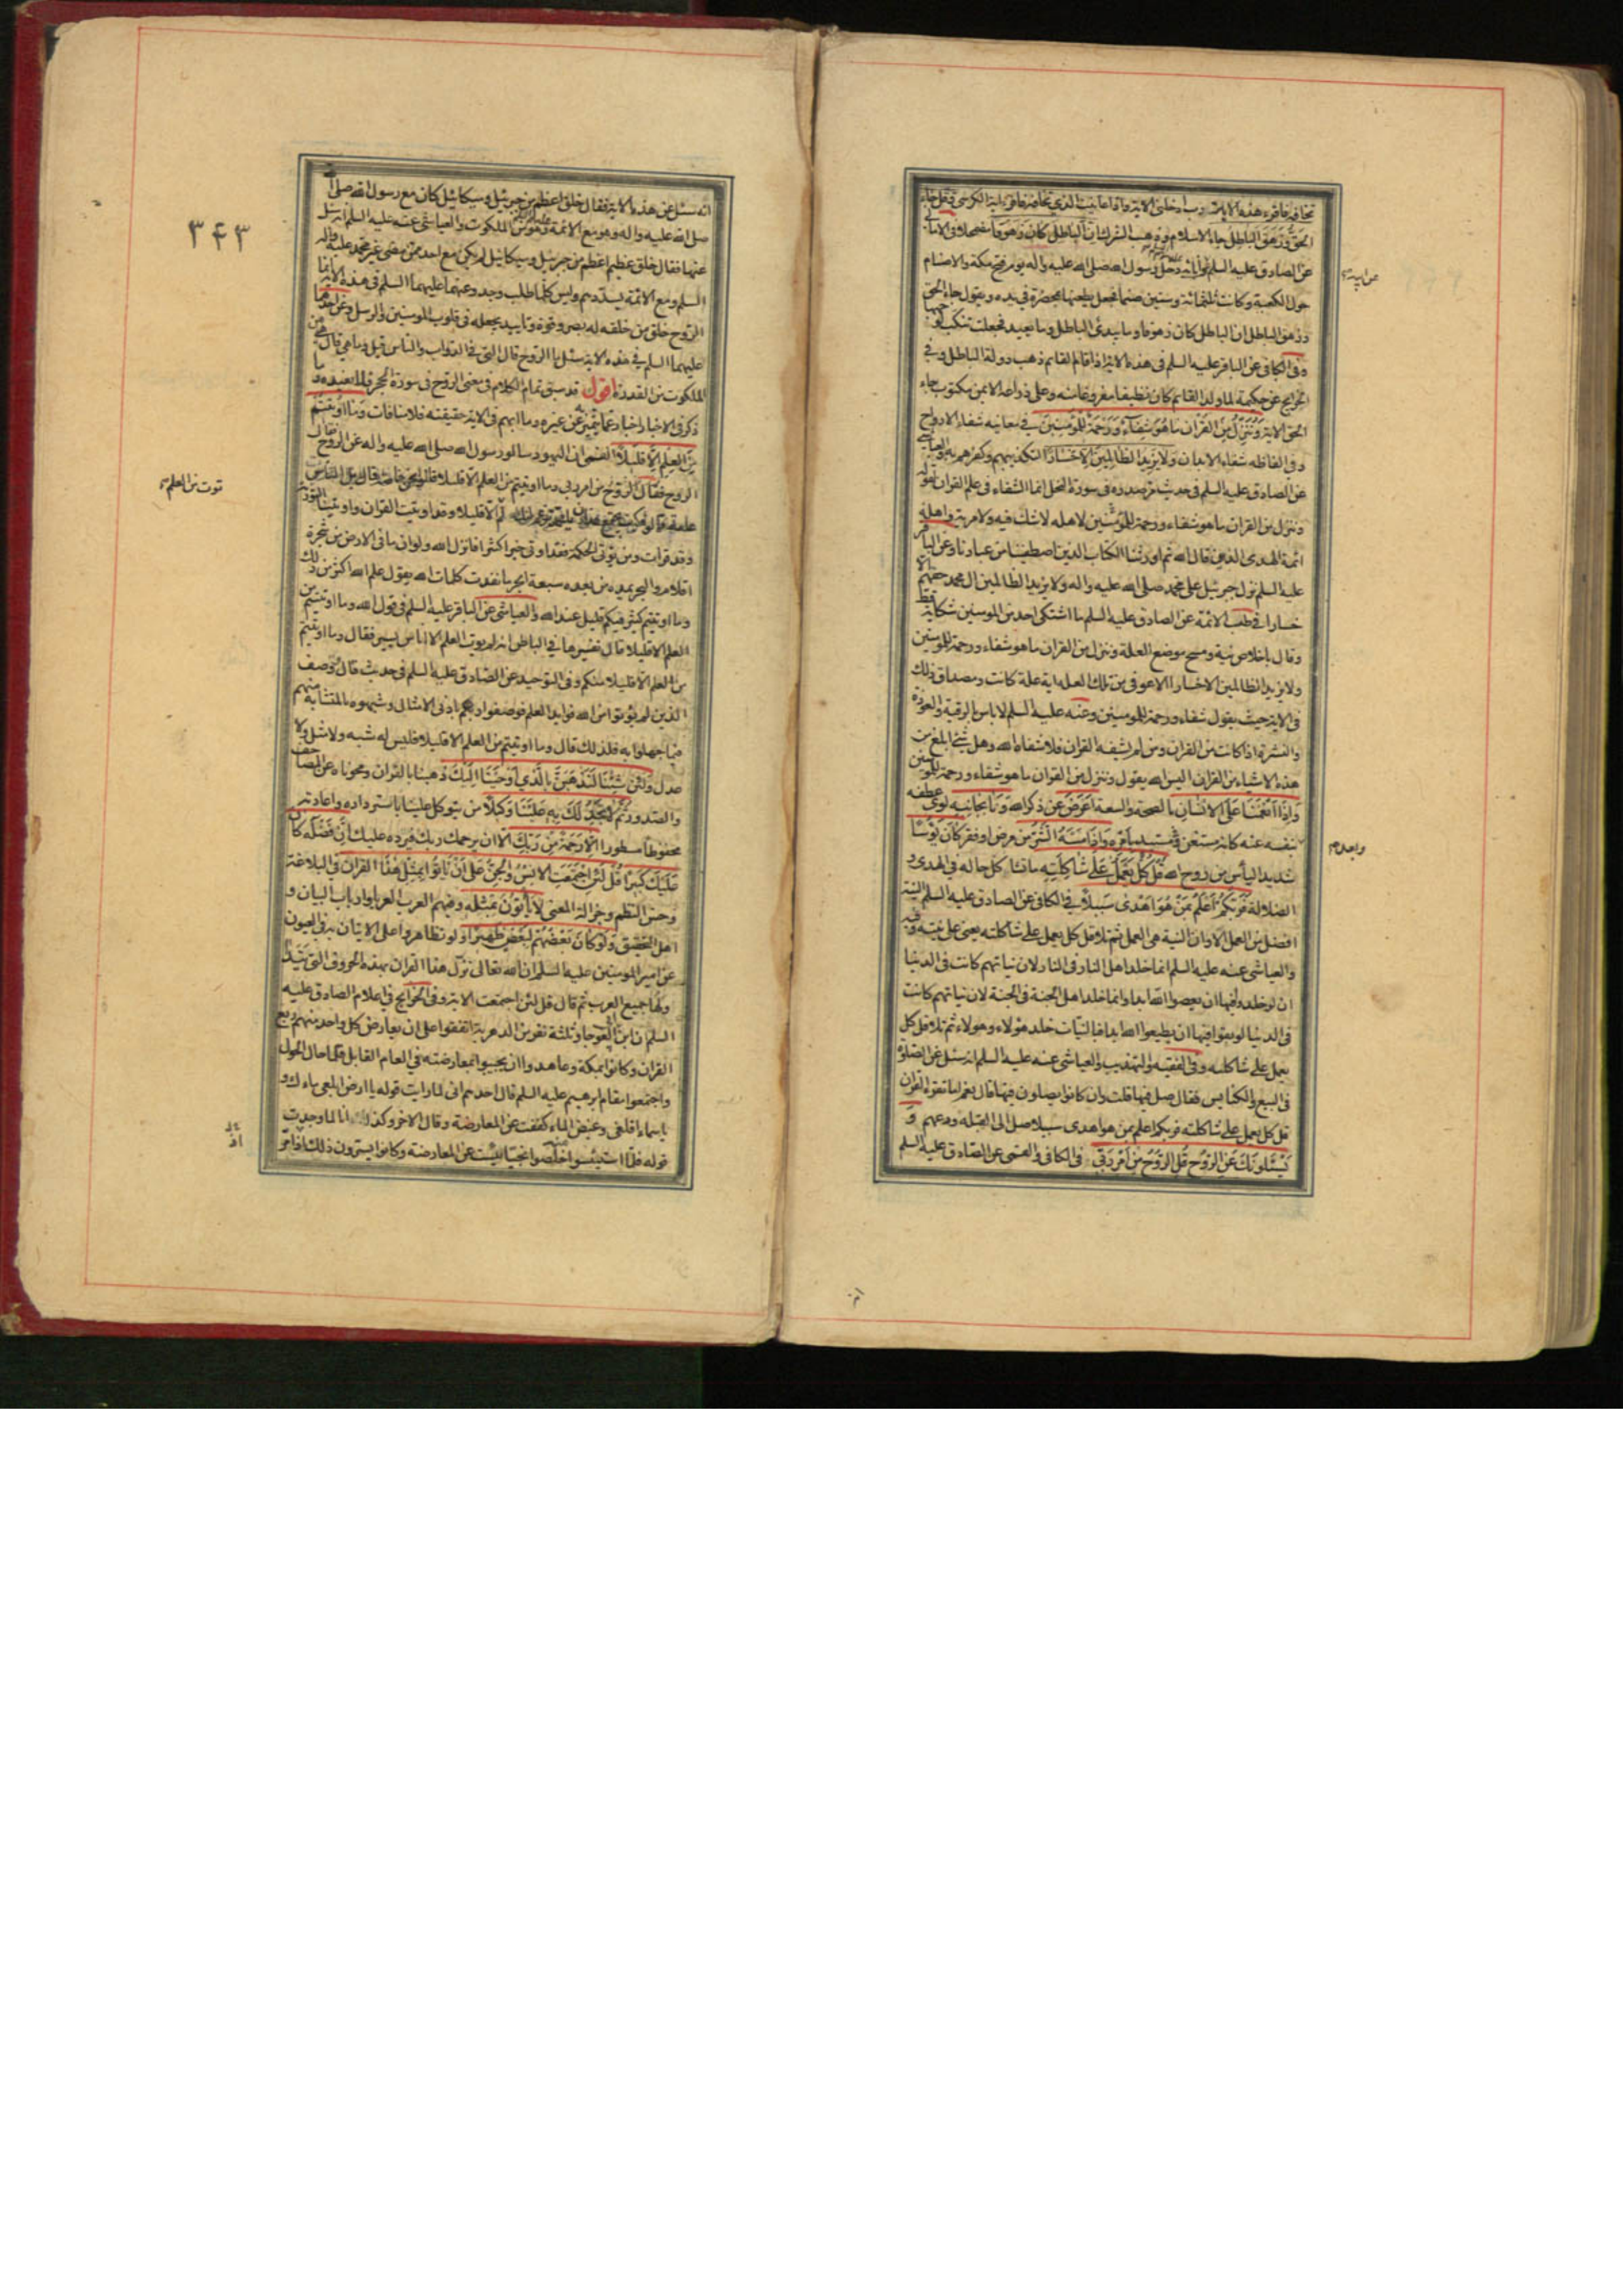 تخافه فاقرء هذه الاية رب ادخلنى الاية واذا عاينت الذى تخافه فاقرء اية الكرسى وقل جاء
الحق وزهق الباطل جاء الاسلام وذهب الشرك ان الباطل كان زهوقا مضمحلا فى الامالى
عن الصادق عليه السلم عن ابائه دخل رسول الله صلى الله عليه واله يوم فتح مكة والاصنام
حول الكعبة وكانت ثلثمائة وستين صنما فجعل يطعنها بمخصرة فى يده ويقول جاء الحق
وزهق الباطل ان الباطل كان زهوقا وما يبدئ الباطل وما يعيد فجعلت تنكب لوجهها
وفى الكافى عن الباقر عليه السلم فى هذه الاية اذا قام القائم ذهب دولة الباطل وفى
الخرايج عن حكيمة لما ولد القائم كان نظيفا مفروغا منه وعلى ذراعه الايمن مكتوب جاء
الحق الاية وننزل من القران ما هو شفاء ورحمة للمؤمنين فى معانيه شفاء الارواح
وفى الفاظه شفاء الابدان ولا يزيد الظالمين الا خسارا لتكذيبهم وكفرهم به العياشى
عن الصادق عليه السلم فى حديث مر صدره فى سورة النحل انما الشفاء فى علم القران لقوله
وننزل من القران ما هو شفاء ورحمة للمؤمنين لاهله لا شك فيه ولا مرية واهله
ائمة الهدى الذين قال الله ثم اورثنا الكتاب الذين اصطفينا من عبادنا وعن الباقر
عليه السلم نزل جبرئيل على محمد صلى الله عليه واله ولا يزيد الظالمين ال محمد حقهم الا
خسارا فى طب الائمة عن الصادق عليه السلم ما اشتكى احد من المومنين شكاية قط
وقال باخلاص نية ومسح موضع العلة وننزل من القران ما هو شفاء ورحمة للمومنين
ولا يزيد الظالمين الا خسارا الا عوفى من تلك العلة اية علة كانت ومصداق ذلك
فى الاية حيث يقول شفاء ورحمة للمومنين وعنه عليه السلم لا باس بالرقية والعوذة
والنشرة اذا كانت من القران ومن لم يشفه القران فلا شفاه الله وهل شئ ابلغ من
هذه الاشياء من القران اليس الله يقول وننزل من القران ما هو شفاء ورحمة للمومنين
واذا انعمنا على الانسان بالصحة والسعة اعرض عن ذكر الله ونا بجانبه لوى عطفه
بنفسه عنه كانه مستغن مستبد بامره واذا مسه الشر من مرض او فقر كان يؤسا
شديد الياس من روح الله قل كل يعمل على شاكلته ما تشاكل حاله فى الهدى و
الضلالة فربكم اعلم بمن هو اهدى سبيلا فى الكافى عن الصادق عليه السلم النية
افضل من العمل الا وان النية هى العمل ثم تلا قل كل يعمل على شاكلته يعنى على نيته وفيه
والعياشى عنه عليه السلم انما خلد اهل النار فى النار لان نياتهم كانت فى الدنيا
ان لو خلدوا فيها ان يعصوا الله ابدا وانما خلد اهل الجنة فى الجنة لان نياتهم كانت
فى الدنيا لو بقوا فيها ان يطيعوا الله ابدا فبالنيات خلد هؤلاء وهولاء ثم تلا قل كل
يعمل على شاكلته وفى الفقيه والتهذيب والعياشى عنه عليه السلم انه سئل عن الصلوة
فى البيع والكنايس فقال صل فيها قلت وان كانوا يصلون فيها قال نعم اما تقرء القران
قل كل يعمل على شاكلته فربكم اعلم بمن هو اهدى سبيلا صل الى القبلة ودعهم و
يسئلونك عن الروح قل الروح من امر ربى فى الكافى والقمى عن الصادق عليه السلم
۳۴۳
انه سئل عن هذه الاية فقال خلق اعظم من جبرئيل وميكائيل كان مع رسول الله صلى
صلى الله عليه واله وهو مع الائمة وهو من الملكوت والعياشى عنه عليه السلم انه سئل
عنها فقال خلق عظيم اعظم من جبرئيل وميكائيل لم يكن مع احد ممن مضى غير محمد عليه واله
السلم ومع الائمة يسددهم وليس كلما طلب وجد وعنهما عليهما السلم فى هذه الاية انما
الروح خلق من خلقه له بصر وقوة وتاييد يجعله فى قلوب المومنين والرسل وعن احدهما
عليهما السلم فى هذه الاية سئل ما الروح قال التى فى الدواب والناس قيل وما هى قال هى من
الملكوت من القدرة اقول قد سبق تمام الكلام فى معنى الروح فى سورة الحجر
ذكر فى الاخبار اخبار عما يتميز به عن غيره وما ابهم فى الاية حقيقته فلا منافات وما اوتيتم
من العلم الا قليلا القمى ان اليهود سالوا رسول الله صلى الله عليه واله عن الروح فقال
الروح من امر ربى وما اوتيتم من العلم الا قليلا قالوا نحن خاصة قال بل الناس
قد اوتيت القران واوتينا التورية
وقد قرات ومن يؤتى الحكمة فقد اوتى خيرا كثيرا فانزل الله ولو ان ما فى الارض من شجرة
اقلام والبحر يمده من بعده سبعة ابحر ما نفدت كلمات الله يقول علم الله اكثر من ذلك
وما اوتيتم كثير فيكم قليل عند الله والعياشى عن الباقر عليه السلم فى قول الله وما اوتيتم من
العلم الا قليلا قال تفسيرها فى الباطن انه لم يوت العلم الا اناس يسير فقال وما اوتيتم
من العلم الا قليلا منكم وفى التوحيد عن الصادق عليه السلم فى حديث قال ووصف
الذين لم يؤتوا من الله فوايد العلم فوصفوا ربهم بادنى الامثال وشبهوه بالمتشابه منهم
فيما جهلوا به فلذلك قال وما اوتيتم من العلم الا قليلا فليس له شبه ولا مثل ولا
عدل ولئن شئنا لنذهبن بالذى اوحينا اليك ذهبنا بالقران ومحوناه عن المصاحف
والصدور ثم لا تجد لك به علينا وكيلا من يتوكل علينا باسترداده واعادته
محفوظا مسطورا الا رحمة من ربك الا ان يرحمك ربك فيرده عليك ان فضله كان
عليك كبيرا قل لئن اجتمعت الانس والجن على ان ياتوا بمثل هذا القران فى البلاغة
وحسن النظم وجزالة المعنى لا ياتون بمثله وفيهم العرب العرباء وارباب البيان و
اهل التحقيق ولو كان بعضهم لبعض ظهيرا ولو تظاهروا على الاتيان به فى العيون
عن امير المومنين عليه السلم ان الله تعالى نزل هذا القران بهذه الحروف التى يتداولها
جميع العرب ثم قال قل لئن اجتمعت الاية وفى الخرايج فى اعلام الصادق عليه
السلم ان ابن ابى العوجا وثلثة نفر من الدهرية اتفقوا على ان يعارض كل واحد منهم ربع
القران وكانوا بمكة وعاهدوا ان يجيبوا بمعارضته فى العام القابل فلما حال الحول
واجتمعوا بمقام ابرهيم عليه السلم قال احدهم انى لما رايت قوله يا ارض ابلعى ماءك و
يا سماء اقلعى وغيض الماء كففت عن المعارضة وقال الاخر وكذلك انا لما وجدت
قوله فلما استيئسوا منه خلصوا نجيا ايئست عن المعارضة وكانوا يسترون ذلك اذ مر